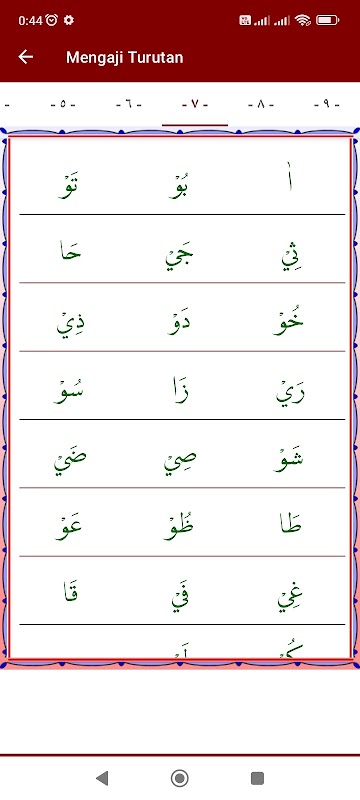 0:44
Mengaji Turutan
- ٥ - - ٦ - - ٧ - - ٨ - - ٩ -
اٰ بُوْ تَوْ
ثِيْ جَيْ حَا
خُوْ دَوْ ذِيْ
رَيْ زَا سُوْ
شَوْ صِيْ ضَيْ
طَا ظُوْ عَوْ
غِيْ فَيْ قَا